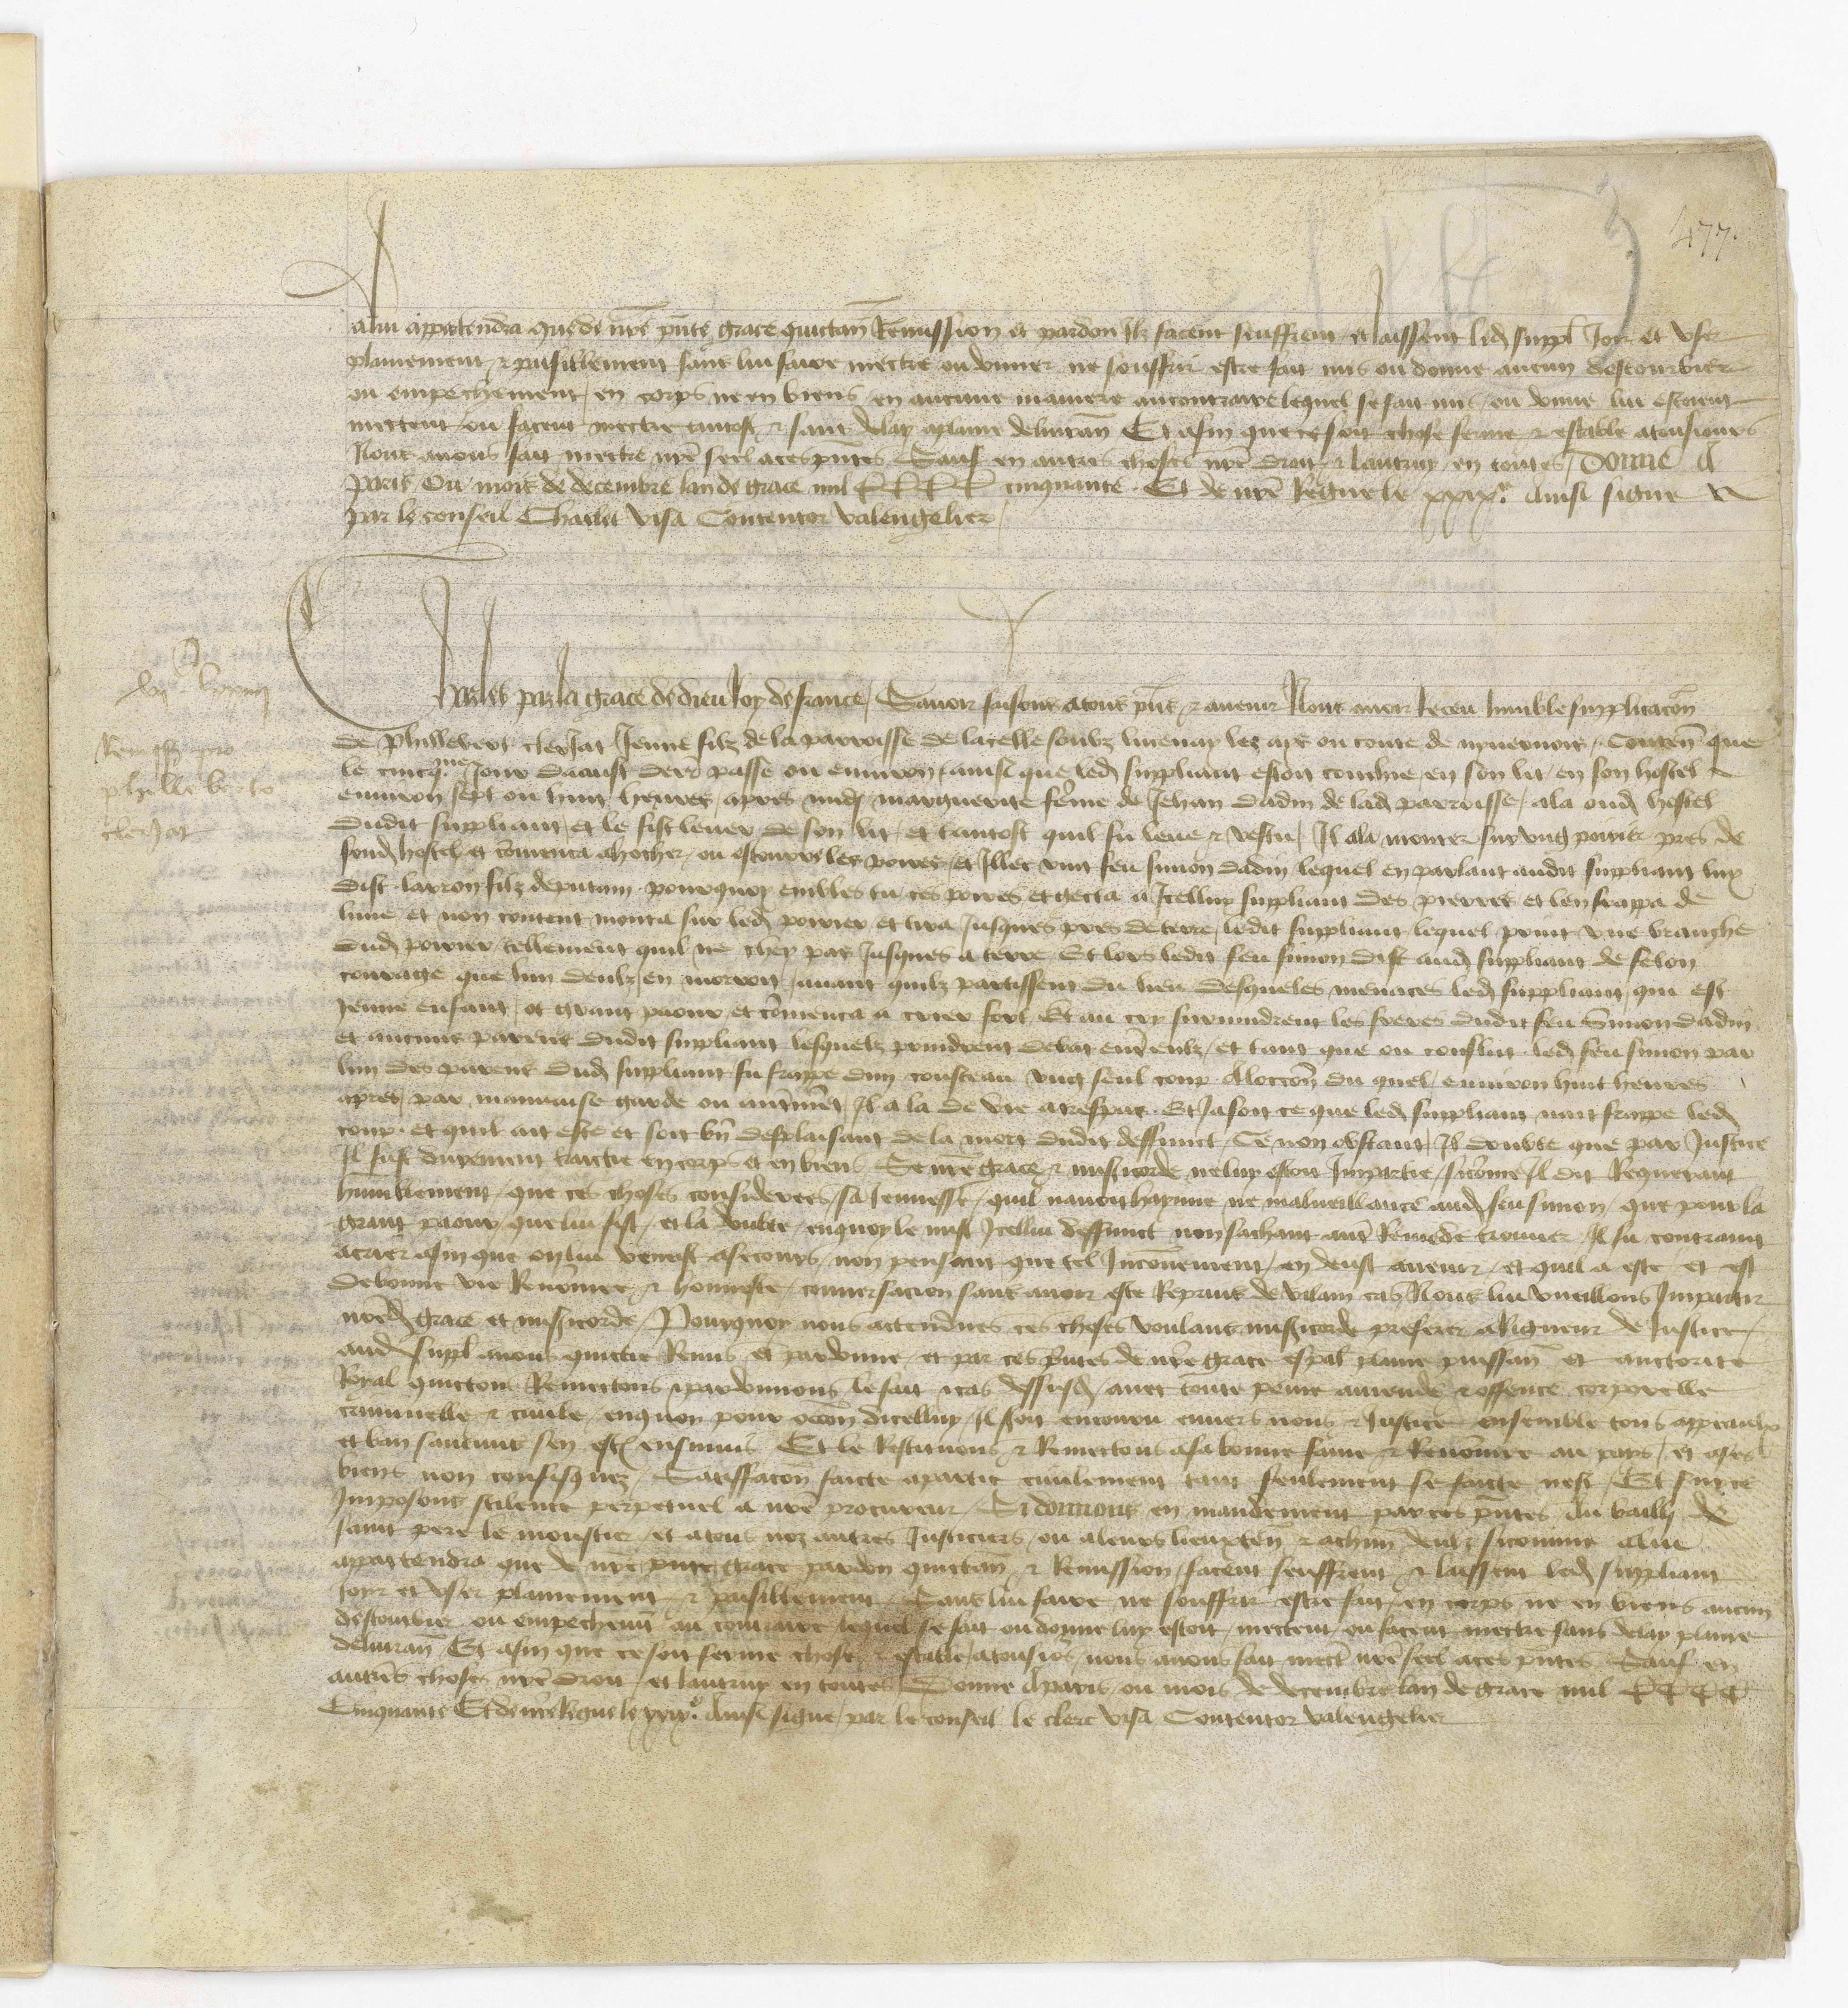 477.
a lui appartendra que de nre pnte grace quictan Remission et pardon Ilz facent seuffrent et laissent led suppl Joir et user
plainement & paisiblement sans lui faire mectre ou donner ne souffrir estre fait mis ou donne aucun destourbier
ou empeschement en corps ne en biens en aucune maniere au contraire lequel se fait mis ou donne lui estoient
mectent ou facent mectre tantost & sans delay a plaine delivran Et afin que ce soit chose ferme & estable a tousiours
Nous avons fait mectre nre seel a ces pntes Sauf en autres choses nre droit & lautruy en toutes Donne A
Paris Ou mois de decembre lan de grace mil CCCC cinquante. Et de nre Regne le xxixe. Ainsi signe
par le conseil Charlet visa Contentor Valengelier
Charles par la grace de dieu Roy de france Savoir faisons a tous pns & avenir Nous avoir Receu lumble supplicacon
Remissio pro
philleberto
clerjat
de Phillebert clerjat Jeune filz de la parroisse de la celle soubz lucenay les ays ou conte de nyvernois. Conten que
le cinqme Jour daoust derr passe ou environ ainsi que led suppliant estoit couchie en son lit en son hostel
environ sept ou huit heures apres midj marguerite feme de Jehan dadin de lad parroisse ala oud hostel
dudit suppliant et le fist lever de son lit et tantost quil fu leve & vestu Il ala monter sur ung poirier pres de
sond hostel et comenca a hocher ou escourre les poires et Illec vint feu simon dadin lequel en parlant audit suppliant luy
dist larron filz de putain pourquoy embles tu ces poires et gecta a Icelluy suppliant des pierres et len frappa de
lune et non content monta sur led poirier et tira Jusques pres de terre ledit suppliant lequel print une branche
dud poirier tellement quil ne chey pas Jusques a terre Et lors ledit feu simon dist aud suppliant de felon
courage que lun deulx en morroit avant quilz partissent du lieu desqueles menaces led suppliant qui est
Jeune enfant ot grant paour et comenca a crier fort Et au cry survindrent les freres dudit feu Simon dadin
et aucuns parens dudit suppliant lesquelz prindrent debat entr eulx et tant que ou conflict led feu simon par
lun des parens dud suppliant fu frappe dun cousteau ung seul coup A loccon du quel environ huit heures
apres par mauvaise garde ou autrment Il ala de vie a trespas. Et Ja soit ce que led suppliant nait frappe led
coup et quil ait este et soit bn desplaisant de la mort dudit deffunct Ce non obstant Il doubte que par Justice
Il fust durement traictie en corps et en biens Se nre grace & misericorde ne luy estoit Impartie sicome Il dit Requerant
humblement que ces choses considerees sa Jeunesse quil navoit hayne ne malveillance aud feu simon que pour la
grant paour que lui fist et la doubte en quoy le mist Icellui deffunct non sachant autr Remede trouver Il fu contraint
a crier afin que on lui venist a secours non pensant que tel Inconvenient en deust avenir et quil a este et est
de bonne vie Renommee & honneste conversacion sans avoir este Reprins de vilain cas Nous lui vueillons Impartir
nosd grace et misericorde Pourquoy nous actendues ces choses voulans misericorde preferer a Rigueur de Justice
aud suppl avons quictie Remis et pardonne et par ces pntes de nre grace espal plaine puissan et auctorite
Royal quictons Remectons & pardonnons le fait & cas dessusd avec toute peine amende & offence corporelle
criminelle & civile en quoy pour occon dicelluy Il soit encouru envers nous & Justice ensemble tous appeaulx
et ban saucuns sen est ensuiviz Et le Restituons & Remectons a sa bonne fame & Renommee au pays et a ses
biens non confisquez Satisfacon faicte a partie civilement tant seulement se faicte nest Et sur ce
Imposons silence perpetuel a nre procureur Si donnons en mandement par ces pntes Au bailli de
saint pere le moustier et a tous noz autres Justiciers ou a leurs lieuxten & achun deulx sicomme a lui
appartendra que de nre pnte grace pardon quictan & Remission facent seuffrent & laissent led suppliant
Joir et user plainement & paisiblement Sans lui faire ne souffrir estre fait en corps ne en biens aucun
destourbier ou empeschemt au contraire lequel se fait ou donne luy estoit mectent ou facent mectre sans delay a plaine
delivran Et afin que ce soit ferme chose & estable a tousios nous avons fait mectr nre seel a ces pntes Sauf en
autres choses nre droit et lautruy en toutes Donne A paris ou mois de decembre lan de grace mil CCCC
Cinquante Et de nre Regne le xxixe. Ainsi signe par le conseil le clerc visa Contentor Valengelier